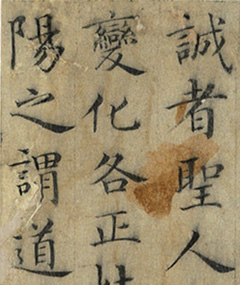 誠者聖人
變化各正
陽之謂道